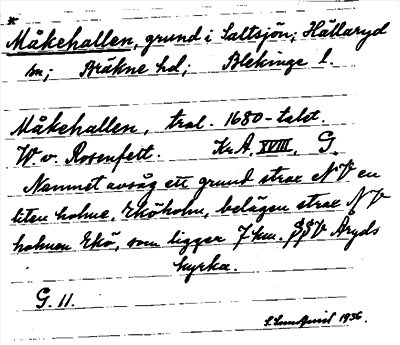 *
Måkehallen, grund i Saltsjön; Hällaryd
sn; Bräkne hd; Blekinge l.
Måkehallen, trol. 1680-talet.
W. v. Rosenfelt. Kr.A. XVIII. G.
Namnet avsåg ett grund strax NV en
liten holme, Eköholm, belägen strax NV
holmen Ekö, som ligger 7 km. SSV Åryds
kyrka.
G. 11.
S. 1936.